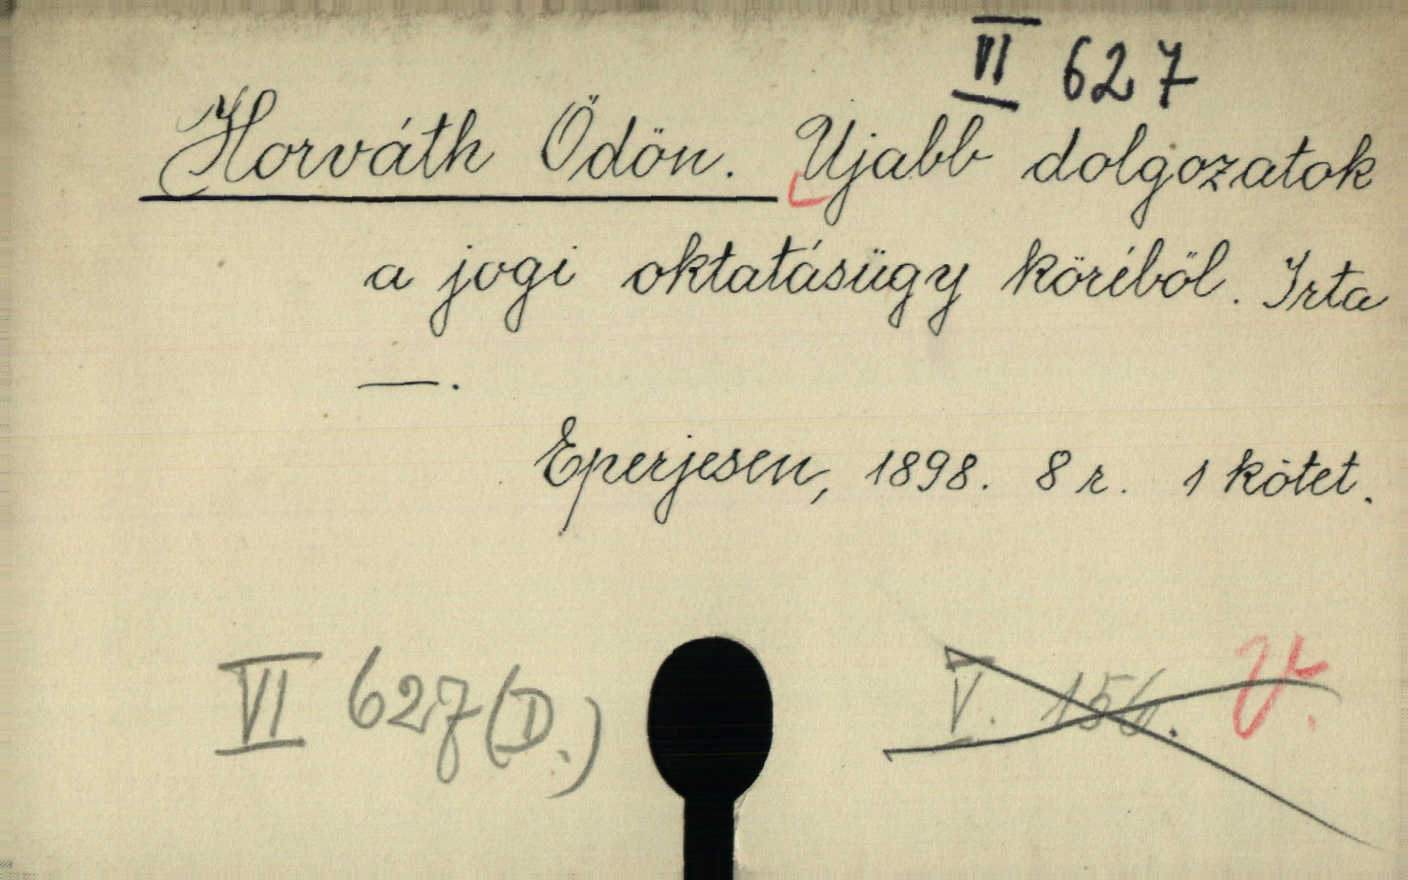 VI 627
Horváth Ödön. Ujabb dolgozatok
a jogi oktatásügy köréből. Irta
—.
Eperjesen, 1898. 8 r. 1 kötet.
VI 627 (D.)
V. 154. V.